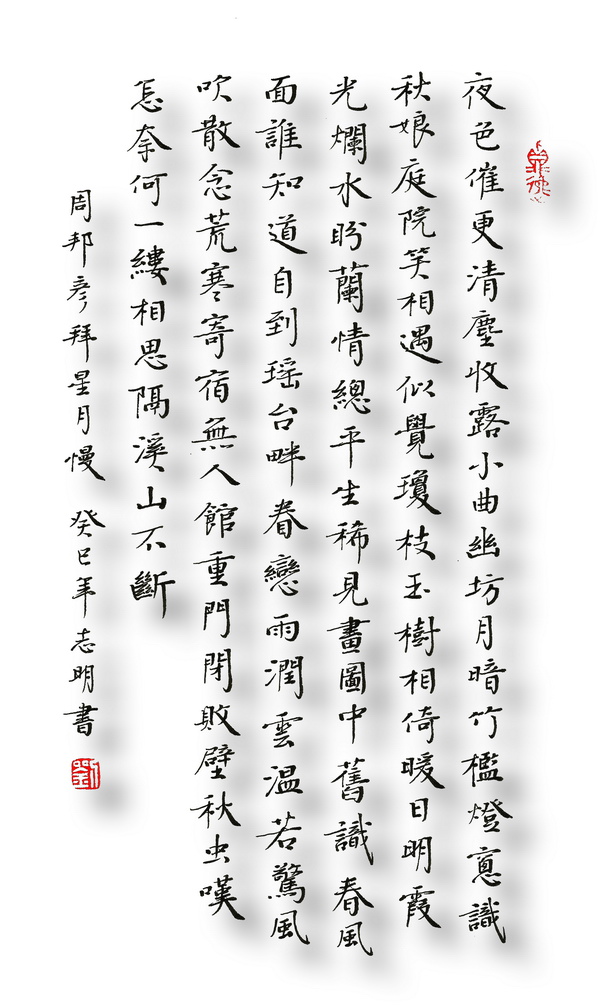 夜色催更清塵收露小曲幽坊月暗竹檻燈窻識
秋娘庭院笑相遇似覺瓊枝玉樹相倚暖日明霞
光爛水盼蘭情總平生稀見畫圖中舊識春風
面誰知道自到瑶台畔眷戀雨潤雲温若驚風
吹散念荒寒寄宿無人館重門閉敗壁秋虫嘆
怎奈何一縷相思隔溪山不斷
周邦彦拜星月慢 癸巳年志明書
劉